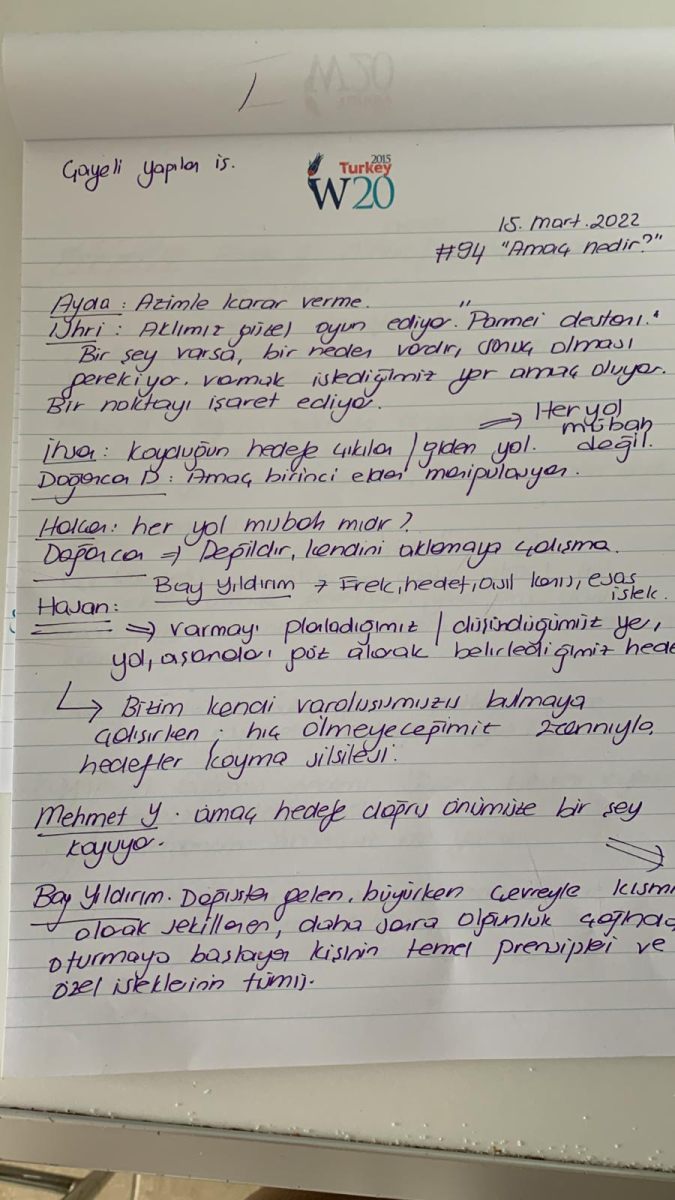 Gayeli yapılan iş.
2015
Turkey
W20
15. Mart. 2022
#94 "Amaç nedir?"
Ayda : Azimle karar verme.
Aklımız güzel oyun ediyor. "Parmei destanı."
Bir şey varsa, bir neden vardır, sonuç olması
gerekiyor. varmak istediğimiz yer amaç oluyor.
Bir noktayı işaret ediyor.
⇒ Her yol
mübah
değil.
Koyduğun hedefe çıkılan / giden yol.
Doğancan D : Amaç birinci elden manipulasyon.
Hakan: her yol mubah mıdır?
Doğancan ⇒ Değildir, kendini aklamaya çalışma.
Bay Yıldırım → Erek, hedef, asıl konu, esas
istek.
Hasan:
⇒ varmayı planladığımız / düşündüğümüz ye,
yol, aşamaları göz alarak belirlediğimiz hede
↳ Bizim kendi varoluşumuzu bulmaya
çalışırken ; hiç ölmeyeceğimiz zannıyla,
hedefler koyma silsilesi.
Mehmet Y. amaç hedefe doğru önümüze bir şey
koyuyor.
Bay Yıldırım. Doğuştan gelen, büyürken çevreyle kısmi
olarak şekillenen, daha sonra olgunluk çağında
oturmaya başlayan kişinin temel prensipleri ve
özel isteklerinin tümü.